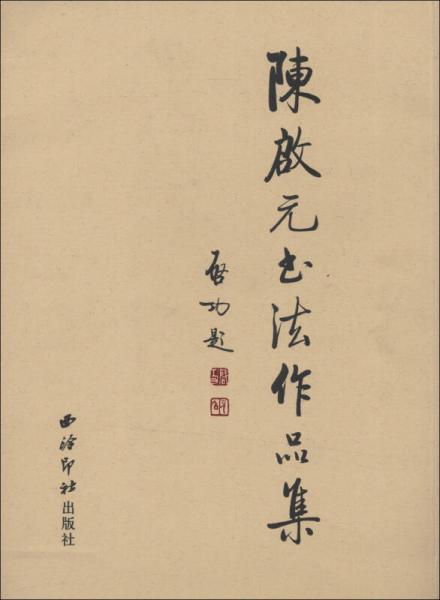 陳啟元书法作品集
启功题
西泠印社出版社